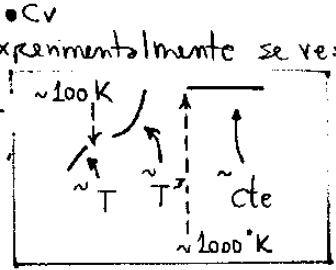 • Cv
xperimentalmente se ve
~100K
~T
~T³
~cte
~1000°K